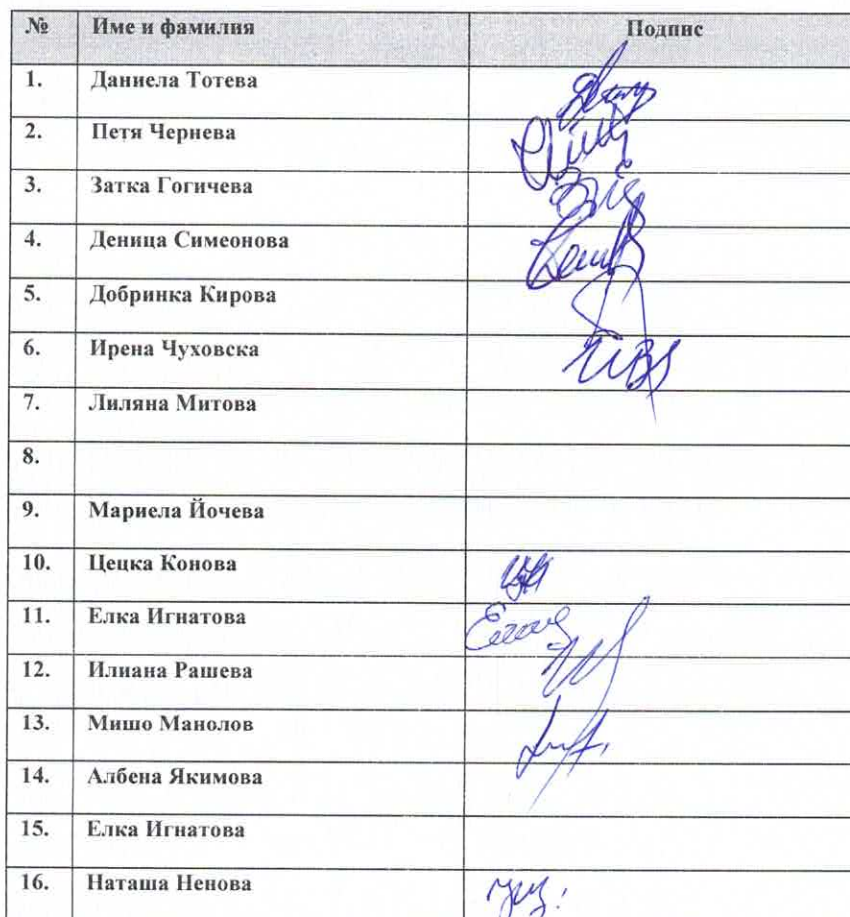 № Име и фамилия Подпис
1. Даниела Тотева
2. Петя Чернева
3. Затка Гогичева
4. Деница Симеонова
5. Добринка Кирова
6. Ирена Чуховска
7. Лиляна Митова
8.
9. Мариела Йочева
10. Цецка Конова
11. Елка Игнатова
12. Илиана Рашева
13. Мишо Манолов
14. Албена Якимова
15. Елка Игнатова
16. Наташа Ненова